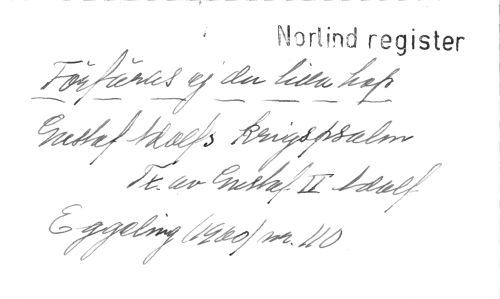 Norlind register
Förfäras ej du lilla hop
Gustaf Adolfs krigspsalm
Tx. av Gustaf II Adolf
Eggeling (1960) nr. 110